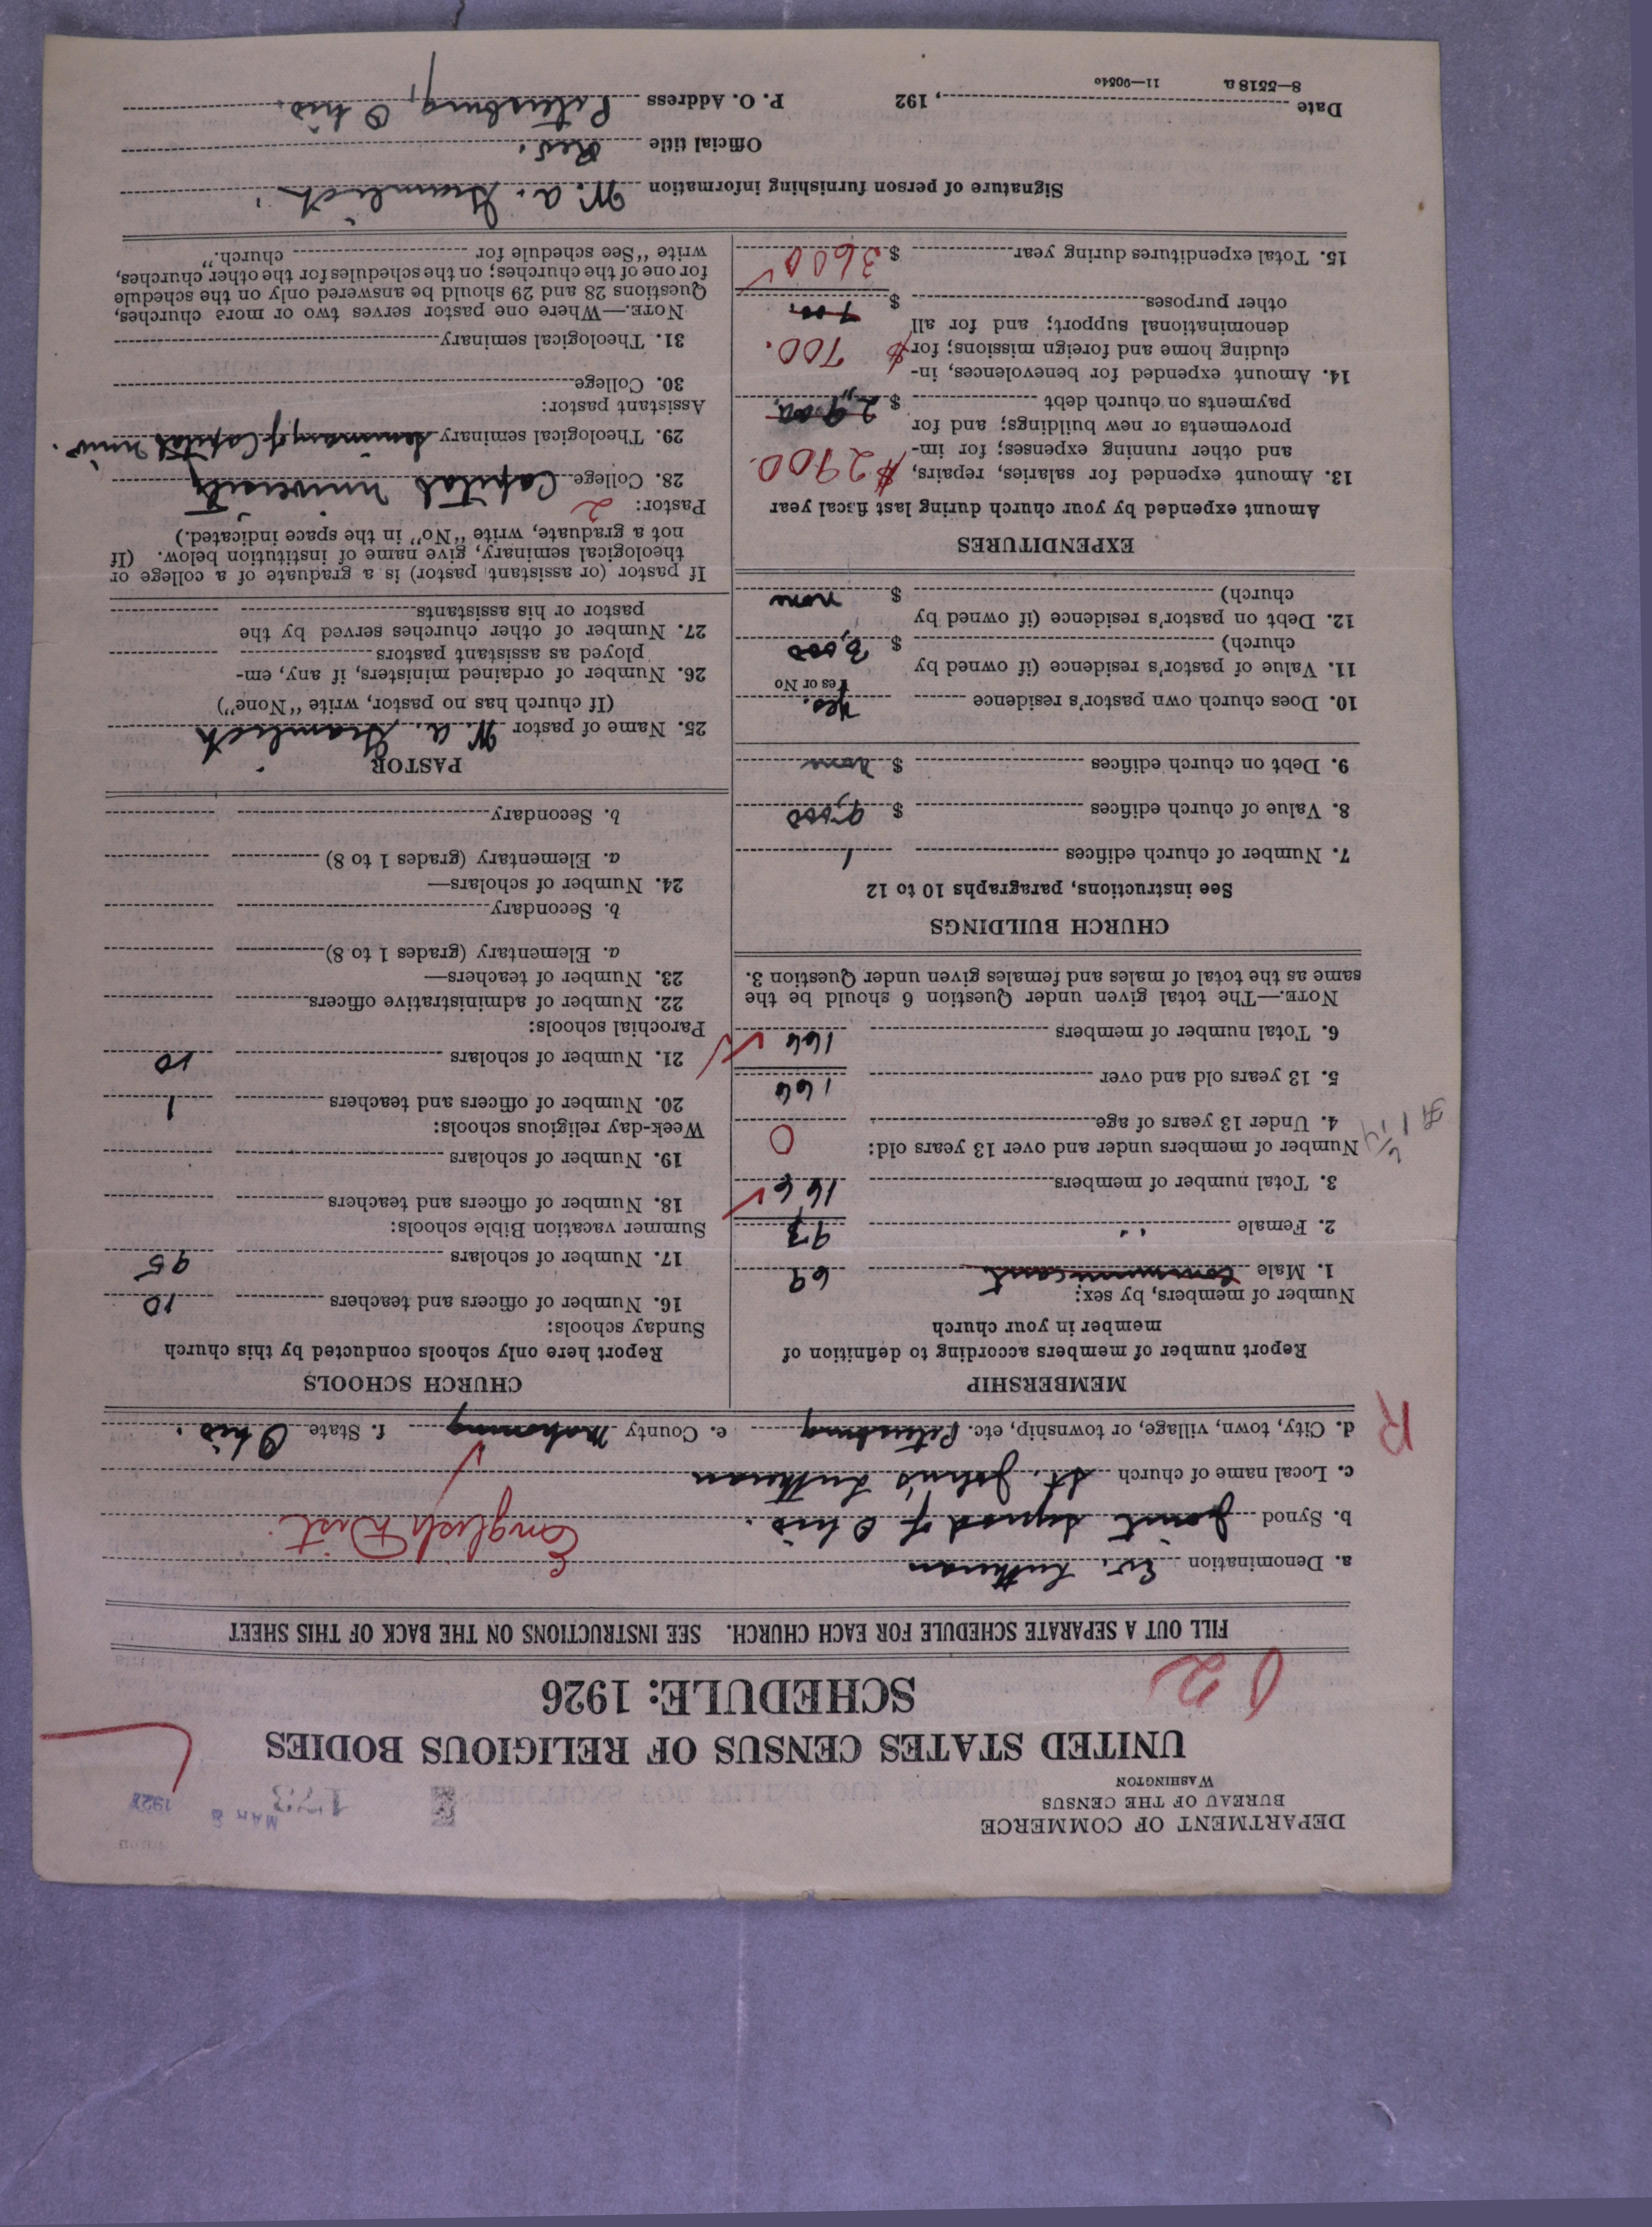 DEPARTMENT OF COMMERCE
BUREAU OF THE CENSUS
WASHINGTON
MAR 8 192
UNITED STATES CENSUS OF RELIGIOUS BODIES
SCHEDULE: 1926
FILL OUT A SEPARATE SCHEDULE FOR EACH CHURCH. SEE INSTRUCTIONS ON THE BACK OF THIS SHEET
a. Denomination Ev. Lutheran
b. Synod Joint Synod of Ohio. English Dist.
c. Local name of church St. John's Lutheran
d. City, town, village, or township, etc. Petersburg e. County Mahoning f. State Ohio.
R
MEMBERSHIP
Report number of members according to definition of
member in your church
Number of members, by sex:
1. Male communicant 69
2. Female " 97
3. Total number of members 166
Number of members under and over 13 years old:
4. Under 13 years of age 0
5. 13 years old and over 166
6. Total number of members 166
NOTE.—The total given under Question 6 should be the
same as the total of males and females given under Question 3.
CHURCH BUILDINGS
See instructions, paragraphs 10 to 12
7. Number of church edifices 1
8. Value of church edifices $ 9,000
9. Debt on church edifices $ none
10. Does church own pastor's residence Yes.
Yes or No
11. Value of pastor's residence (if owned by
church) $ 3,000
12. Debt on pastor's residence (if owned by
church) $ none
EXPENDITURES
Amount expended by your church during last fiscal year
13. Amount expended for salaries, repairs, $2900.
and other running expenses; for im-
provements or new buildings; and for
payments on church debt $ 2,900.
14. Amount expended for benevolences, in-
cluding home and foreign missions; for $ 700.
denominational support; and for all
other purposes $ 700.
15. Total expenditures during year $ 3600
CHURCH SCHOOLS
Report here only schools conducted by this church
Sunday schools:
16. Number of officers and teachers 10
17. Number of scholars 95
Summer vacation Bible schools:
18. Number of officers and teachers
19. Number of scholars
Week-day religious schools:
20. Number of officers and teachers 1
21. Number of scholars 10
Parochial schools:
22. Number of administrative officers
23. Number of teachers—
a. Elementary (grades 1 to 8)
b. Secondary
24. Number of scholars—
a. Elementary (grades 1 to 8)
b. Secondary
PASTOR
25. Name of pastor W. A. Gramlich
(If church has no pastor, write "None")
26. Number of ordained ministers, if any, em-
ployed as assistant pastors
27. Number of other churches served by the
pastor or his assistants
If pastor (or assistant pastor) is a graduate of a college or
theological seminary, give name of institution below. (If
not a graduate, write "No" in the space indicated.)
Pastor: 2
28. College Capital University
29. Theological seminary Seminary of Capital Univ.
Assistant pastor:
30. College
31. Theological seminary
NOTE.—Where one pastor serves two or more churches,
Questions 28 and 29 should be answered only on the schedule
for one of the churches; on the schedules for the other churches,
write "See schedule for church."
Signature of person furnishing information W. A. Gramlich
Official title Rev.
Date , 192 P. O. Address Petersburg, Ohio.
8—5518 a 11—9054c